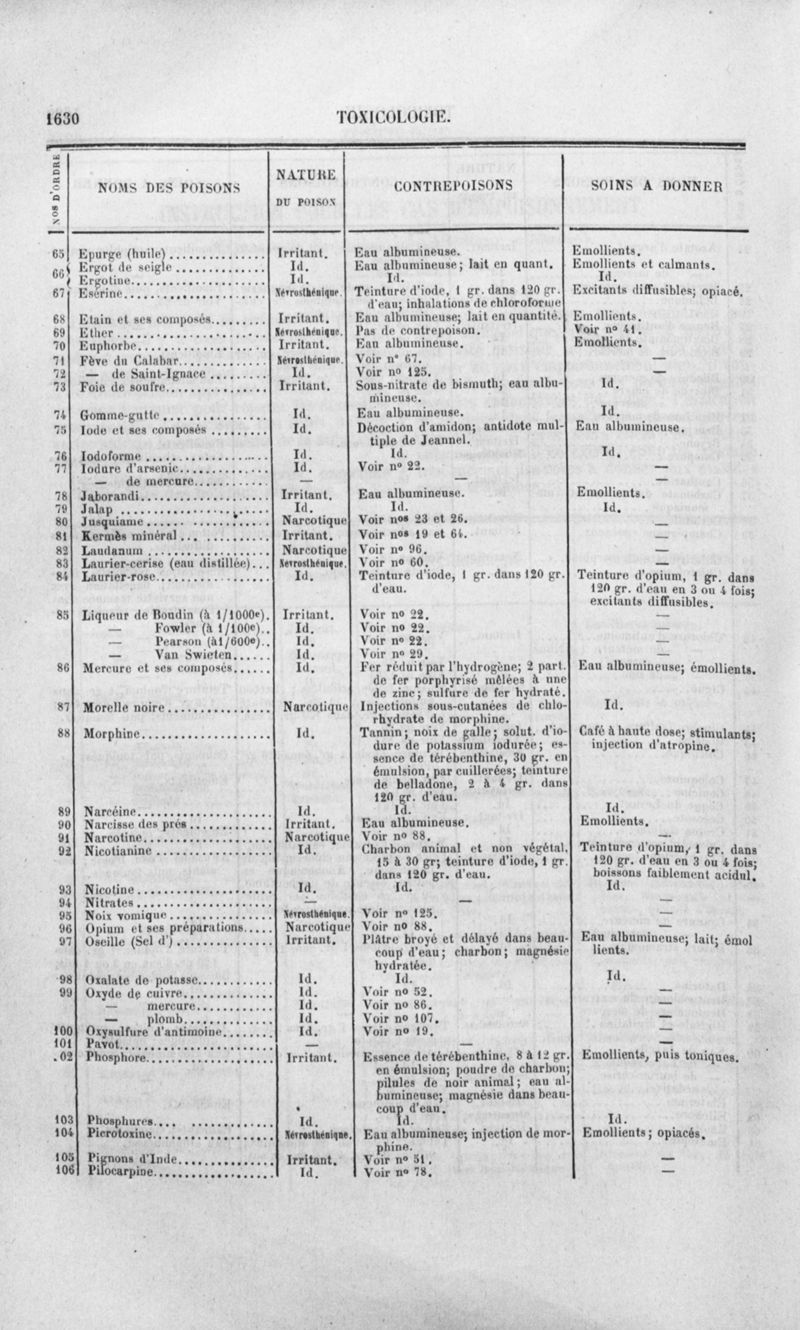 1630 TOXICOLOGIE.
NOS D'ORDRE NOMS DES POISONS NATURE DU POISON CONTREPOISONS SOINS A DONNER
65 Epurge (huile) Irritant. Eau albumineuse. Emollients.
66 Ergot de seigle Id. Eau albumineuse; lait en quant. Emollients et calmants.
Ergotine Id. Id. Id.
67 Esérine Névrosthénique. Teinture d'iode, 1 gr. dans 120 gr. Excitants diffusibles; opiacé.
d'eau; inhalations de chloroforme
68 Etain et ses composés Irritant. Eau albumineuse; lait en quantité. Emollients.
69 Ether Névrosthénique. Pas de contrepoison. Voir no 41.
70 Euphorbe Irritant. Eau albumineuse. Emollients.
71 Fève du Calabar Névrosthénique. Voir n° 67. —
72 — de Saint-Ignace Id. Voir no 125. —
73 Foie de soufre Irritant. Sous-nitrate de bismuth; eau albu- Id.
mineuse.
74 Gomme-gutte Id. Eau albumineuse. Id.
75 Iode et ses composés Id. Décoction d'amidon; antidote mul- Eau albumineuse.
tiple de Jeannel.
76 Iodoforme Id. Id. Id.
77 Iodure d'arsenic Id. Voir no 22. —
— de mercure — — —
78 Jaborandi Irritant. Eau albumineuse. Emollients.
79 Jalap Id. Id. Id.
80 Jusquiame Narcotique Voir nos 23 et 26. —
81 Kermès minéral Irritant. Voir nos 19 et 64. —
82 Laudanum Narcotique Voir no 96. —
83 Laurier-cerise (eau distillée) Névrosthénique. Voir no 60. —
84 Laurier-rose Id. Teinture d'iode, 1 gr. dans 120 gr. Teinture d'opium, 1 gr. dans
d'eau. 120 gr. d'eau en 3 ou 4 fois;
excitants diffusibles.
85 Liqueur de Boudin (à 1/1000e). Irritant. Voir no 22. —
— Fowler (à 1/100e).. Id. Voir no 22. —
— Pearson (à1/600e).. Id. Voir no 22. —
— Van Swieten Id. Voir no 29. —
86 Mercure et ses composés Id. Fer réduit par l'hydrogène; 2 part. Eau albumineuse; émollients.
de fer porphyrisé mêlées à une
de zinc; sulfure de fer hydraté.
87 Morelle noire Narcotique Injections sous-cutanées de chlo- Id.
rhydrate de morphine.
88 Morphine Id. Tannin; noix de galle; solut. d'io- Café à haute dose; stimulants;
dure de potassium iodurée; es- injection d'atropine.
sence de térébenthine, 30 gr. en
émulsion, par cuillerées; teinture
de belladone, 2 à 4 gr. dans
120 gr. d'eau.
89 Narcéine Id. Id. Id.
90 Narcisse des prés Irritant. Eau albumineuse. Emollients.
91 Narcotine Narcotique Voir no 88. —
92 Nicotianine Id. Charbon animal et non végétal, Teinture d'opium, 1 gr. dans
15 à 30 gr; teinture d'iode, 1 gr. 120 gr. d'eau en 3 ou 4 fois;
dans 120 gr. d'eau. boissons faiblement acidul.
93 Nicotine Id. Id. Id.
94 Nitrates — — —
95 Noix vomique Névrosthénique. Voir no 125. —
96 Opium et ses préparations Narcotique Voir no 88. —
97 Oseille (Sel d') Irritant. Plâtre broyé et délayé dans beau- Eau albumineuse; lait; émol
coup d'eau; charbon; magnésie lients.
hydratée.
98 Oxalate de potasse Id. Id. Id.
99 Oxyde de cuivre Id. Voir no 52. —
— mercure Id. Voir no 86. —
— plomb Id. Voir no 107. —
100 Oxysulfure d'antimoine Id. Voir no 19. —
101 Pavot — — —
.02 Phosphore Irritant. Essence de térébenthine, 8 à 12 gr. Emollients, puis toniques.
en émulsion; poudre de charbon;
pilules de noir animal; eau al-
bumineuse; magnésie dans beau-
coup d'eau.
103 Phosphures Id. Id. Id.
104 Picrotoxine Névrosthénique. Eau albumineuse; injection de mor- Emollients; opiacés.
phine.
105 Pignons d'Inde Irritant. Voir no 51. —
106 Pilocarpine Id. Voir no 78. —